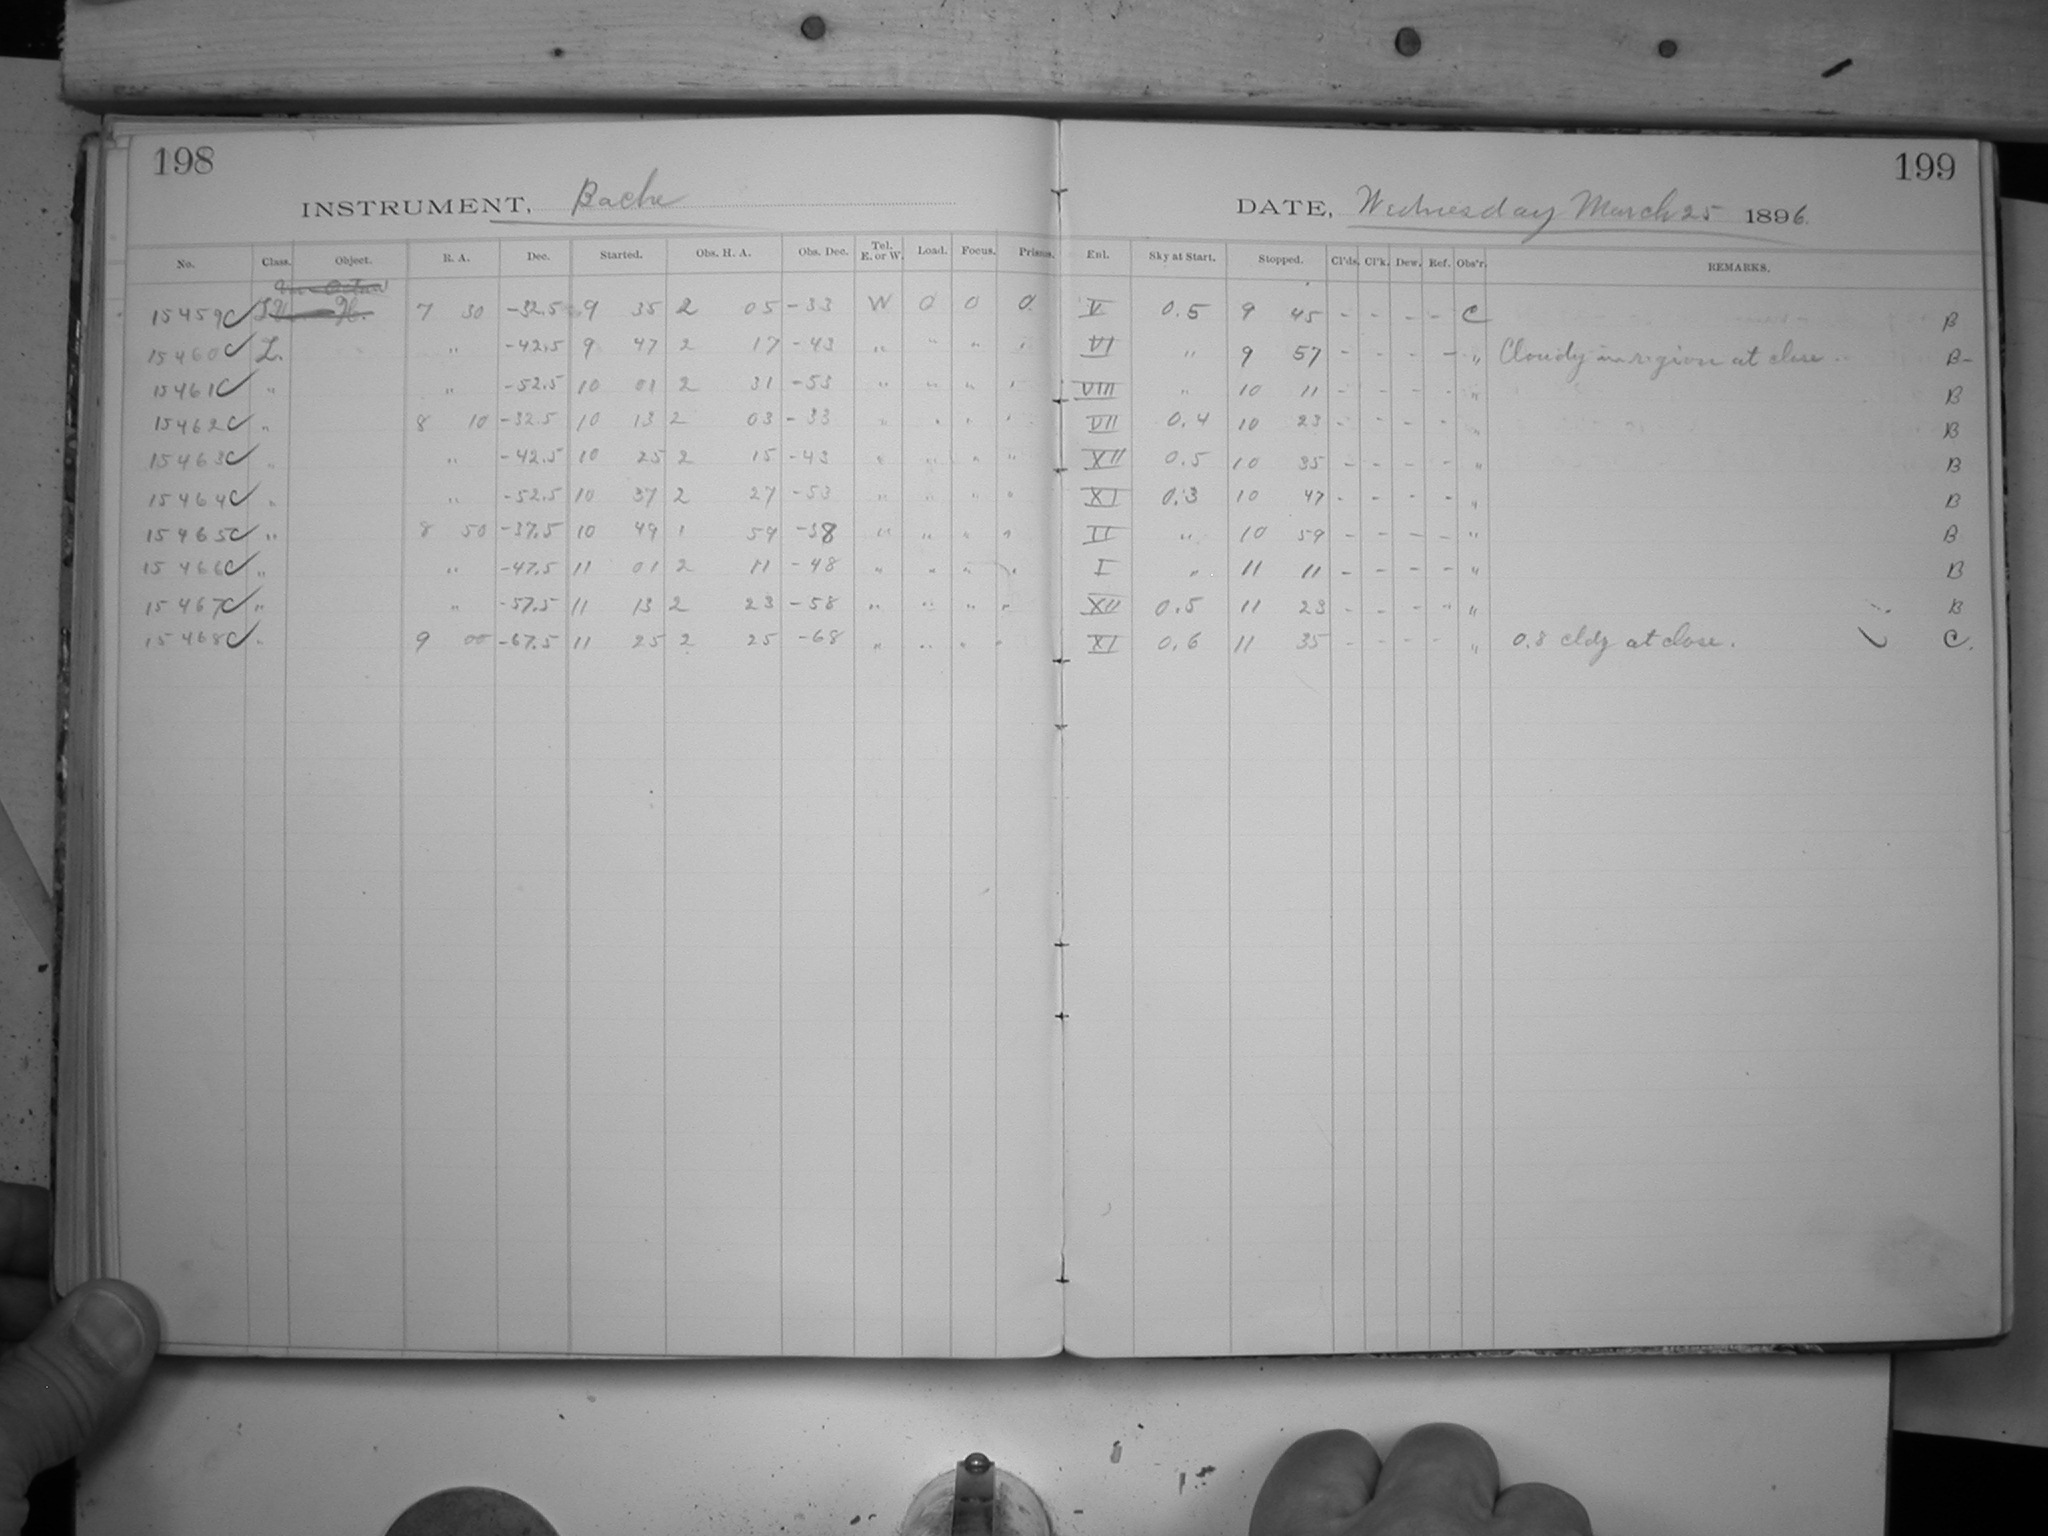 198
199
INSTRUMENT, Bache
DATE, Wednesday March 25 1896.
No. Class. Object. R. A. Dec. Started. Obs. H. A. Obs. Dec. Tel. E. or W. Load. Focus. Prisms. Enl. Sky at Start. Stopped. Cl'ds. Cl'k. Dew. Ref. Obs'r. REMARKS.
15459C 7 30 -32.5 9 35 2 05 -33 W 0 0 0 V 0.5 9 45 - - - - C B
15460C L. " -42.5 9 47 2 17 -43 " " " " VI " 9 57 - - - - " Cloudy in region at close B-
15461C " " -52.5 10 01 2 31 -53 " " " " VIII " 10 11 - - - - " B
15462C " 8 10 -32.5 10 13 2 03 -33 " " " " VII 0.4 10 23 - - - - " B
15463C " " -42.5 10 25 2 15 -43 " " " " XII 0.5 10 35 - - - - " B
15464C " " -52.5 10 37 2 27 -53 " " " " XI 0.3 10 47 - - - - " B
15465C " 8 50 -37.5 10 49 1 59 -38 " " " " II " 10 59 - - - - " B
15466C " " -47.5 11 01 2 11 -48 " " " " I " 11 11 - - - - " B
15467C " " -57.5 11 13 2 23 -58 " " " " XII 0.5 11 23 - - - - " B
15468C " 9 00 -67.5 11 25 2 25 -68 " " " " XI 0.6 11 35 - - - - " 0.8 cldy at close. C.